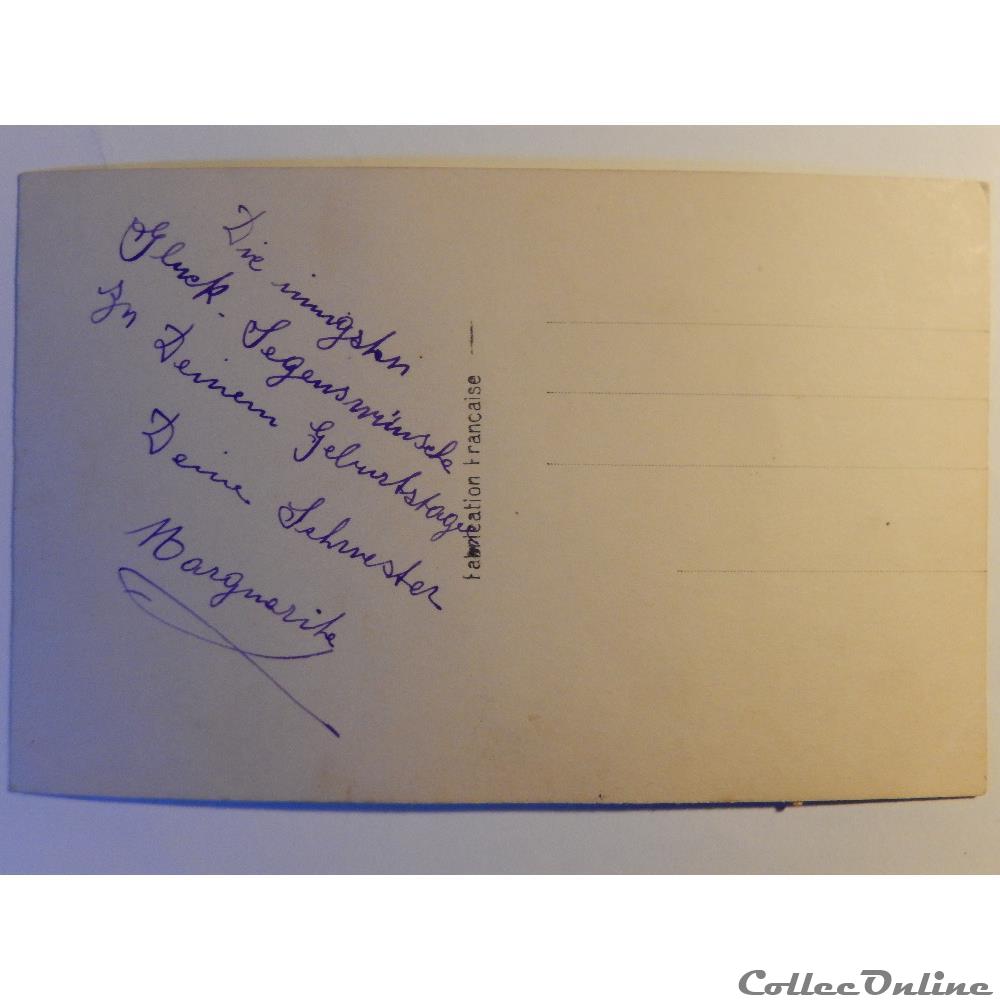 Die innigsten
Gluck- Segenswünsche
Zu Deinem Geburtstage
Deine Schwester
Marguerite
Fabrication Francaise
CollecOnline